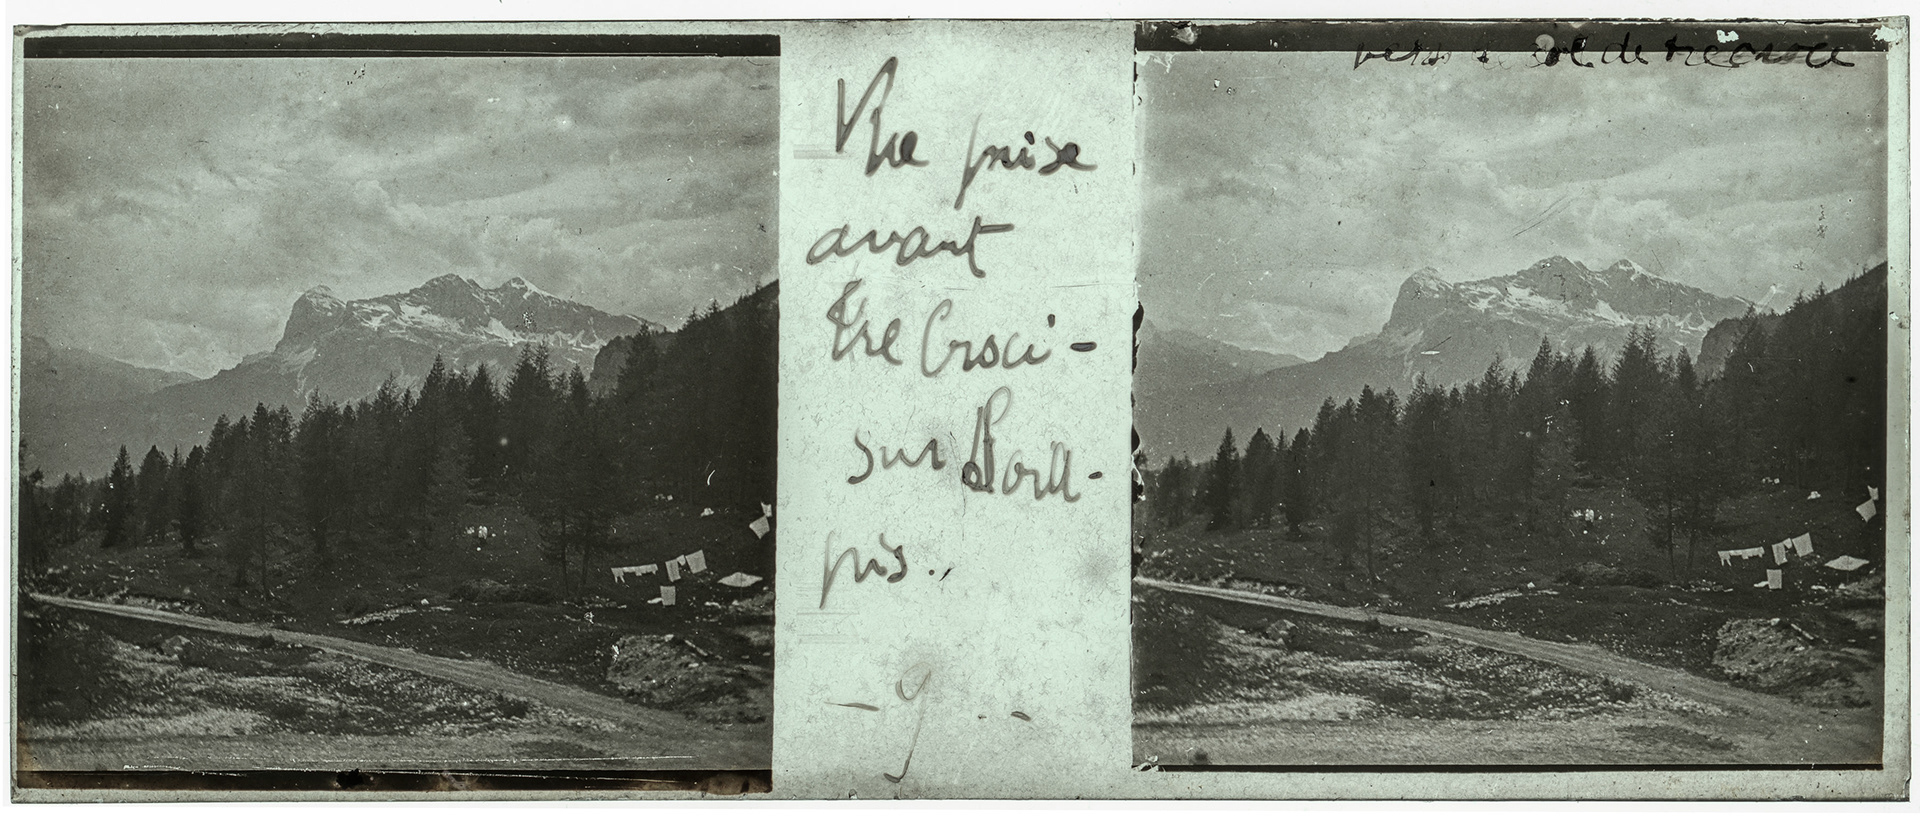 Vue prise
avant
Tre Croci -
sur Sora-
pis.
- 9 -
vers le col de